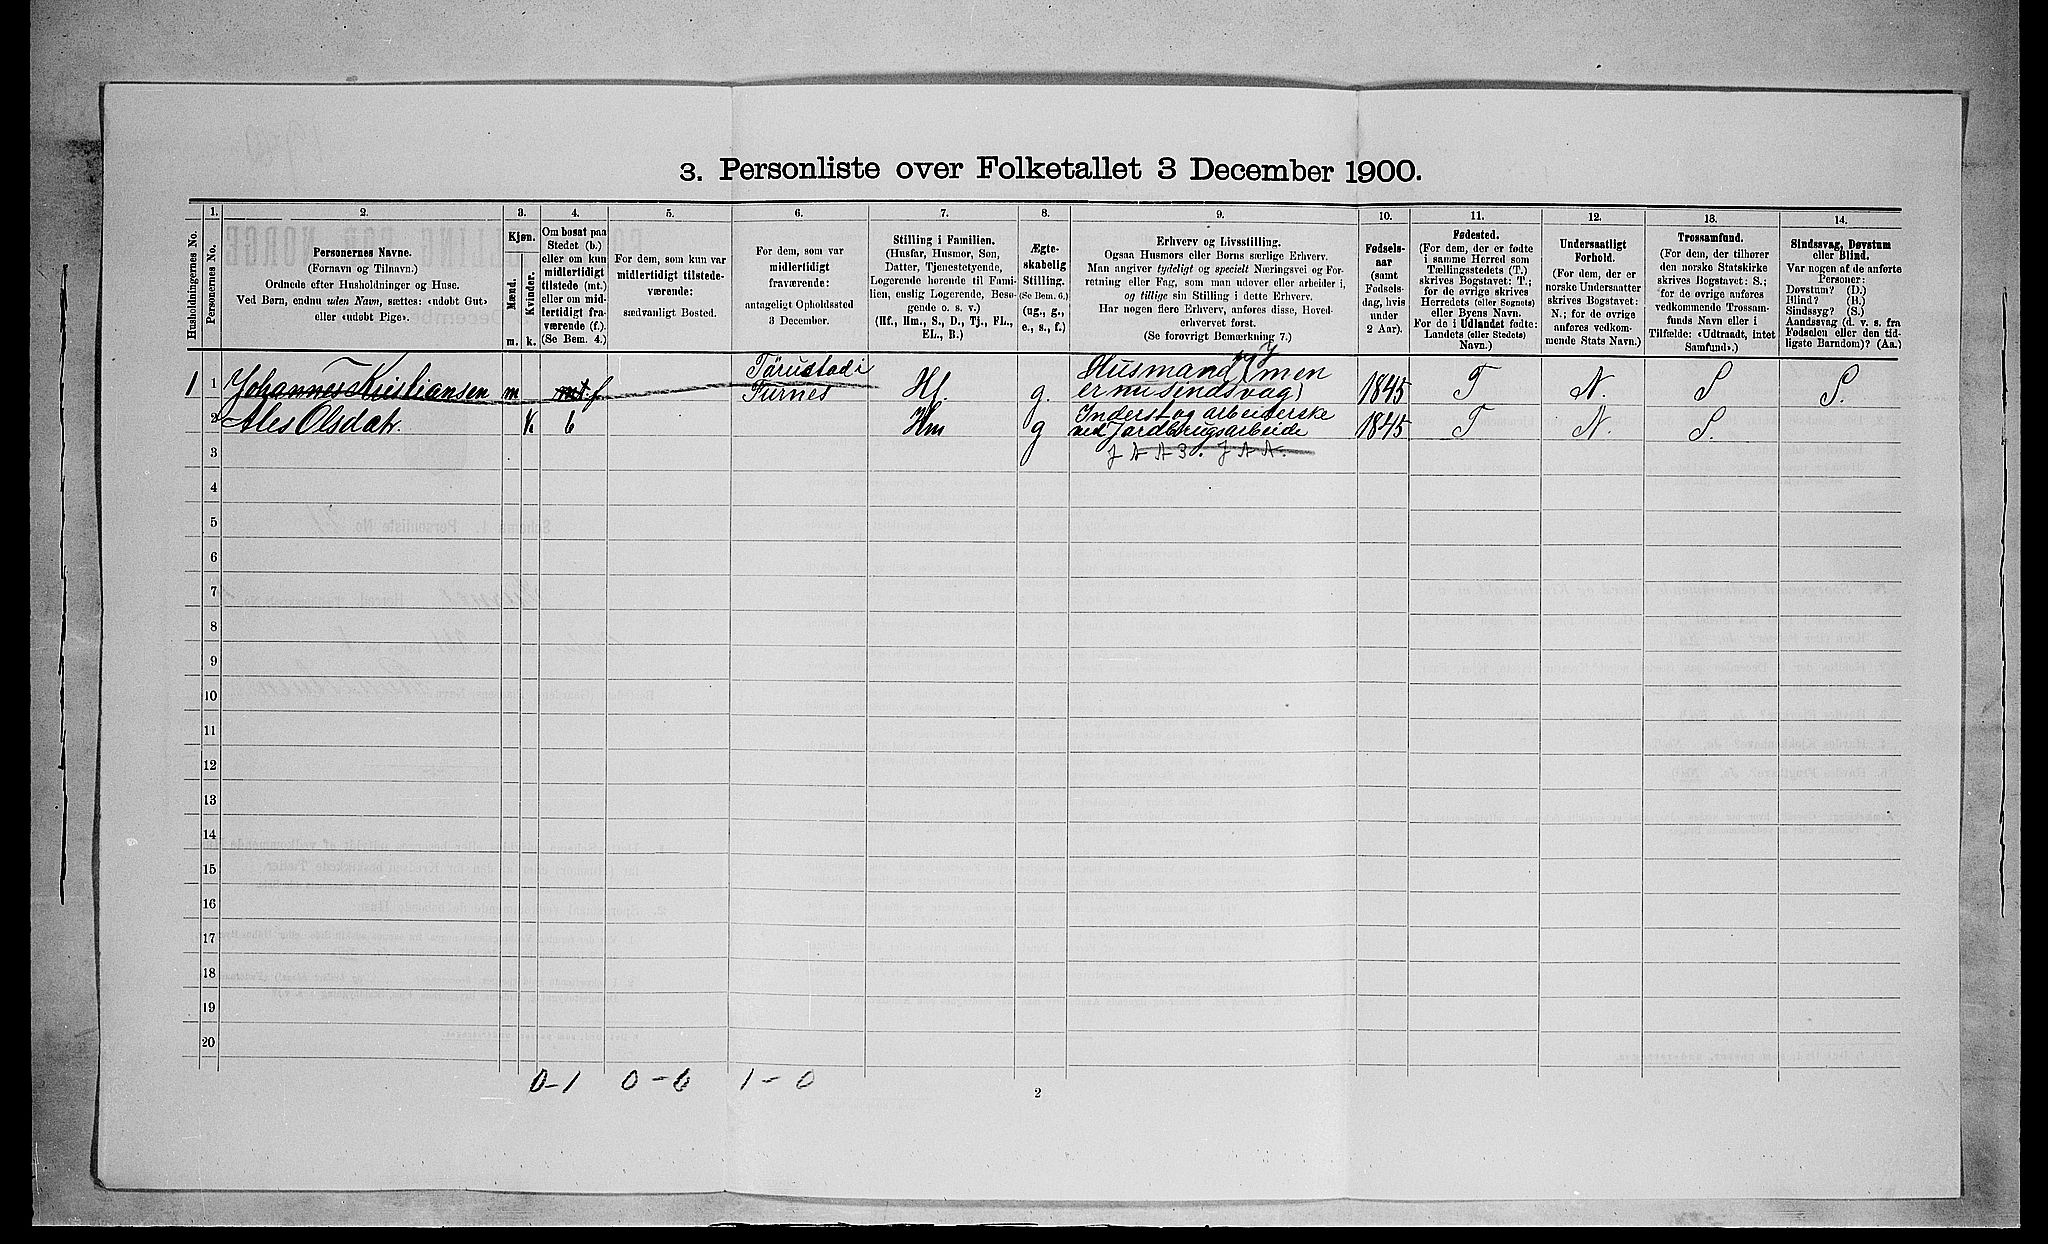 3. Personliste over Folketallet 3 December 1900.
1.
2.
3.
4.
5.
6.
7.
8.
9.
10.
11.
12.
13.
14.
Husholdningernes No.
Personernes No.
Personernes Navne.
(Fornavn og Tilnavn.)
Ordnede efter Husholdninger og Huse.
Ved Børn, endnu uden Navn, sættes: «udøbt Gut»
eller «udøbt Pige».
Kjøn.
Mænd.
Kvinder.
m. k.
Om bosat paa
Stedet (b.)
eller om kun
midlertidigt
tilstede (mt.)
eller om mid-
lertidigt fra-
værende (f.).
(Se Bem. 4.)
For dem, som kun var
midlertidigt tilstede-
værende:
sædvanligt Bosted.
For dem, som var
midlertidigt
fraværende:
antageligt Opholdssted
3 December.
Stilling i Familien.
(Husfar, Husmor, Søn,
Datter, Tjenestetyende,
Logerende hørende til Fami-
lien, enslig Logerende, Besø-
gende o. s. v.)
(Hf., Hm., S., D., Tj., FL.,
EL., B.)
Ægte-
skabelig
Stilling.
(Se Bem. 6.)
(ug., g.,
e., s., f.)
Erhverv og Livsstilling.
Ogsaa Husmors eller Børns særlige Erhverv.
Man angiver tydeligt og specielt Næringsvei og For-
retning eller Fag, som man udøver eller arbeider i,
og tillige sin Stilling i dette Erhverv.
Har nogen flere Erhverv, anføres disse, Hoved-
erhvervet først.
(Se forøvrigt Bemærkning 7.)
Fødsels-
aar
(samt
Fødsels-
dag, hvis
under
2 Aar).
Fødested.
(For dem, der er fødte
i samme Herred som
Tællingsstedets (T.)
skrives Bogstavet: T.;
for de øvrige skrives
Herredets (eller Sognets)
eller Byens Navn.
For de i Udlandet fødte:
Landets (eller Stedets)
Navn.)
Undersaatligt
Forhold.
(For dem, der er
norske Undersaatter
skrives Bogstavet:
N.; for de øvrige
anføres vedkom-
mende Stats Navn.)
Trossamfund.
(For dem, der tilhører
den norske Statskirke
skrives Bogstavet: S.;
for de øvrige anføres
vedkommende Trossam-
funds Navn eller i
Tilfælde: «Udtraadt, intet
Samfund».)
Sindssvag, Døvstum
eller Blind.
Var nogen af de anførte
Personer:
Døvstum? (D.)
Blind? (B.)
Sindssyg? (S.)
Aandssvag (d. v. s. fra
Fødselen eller den tid-
ligste Barndom)? (Aa.)
1 1 Johannes Kristiansen m mt. f. Tørustad i Furnes Hf. g. Husmand (men er nu sindsvag) 1845 T N. S S.
2 Ales Olsdatr. k b Hm g Inderst og arbeiderske ved Jordbrugsarbeide 1845 T N. S.
3
4
5
6
7
8
9
10
11
12
13
14
15
16
17
18
19
20
0-1 0-6 1-0
2